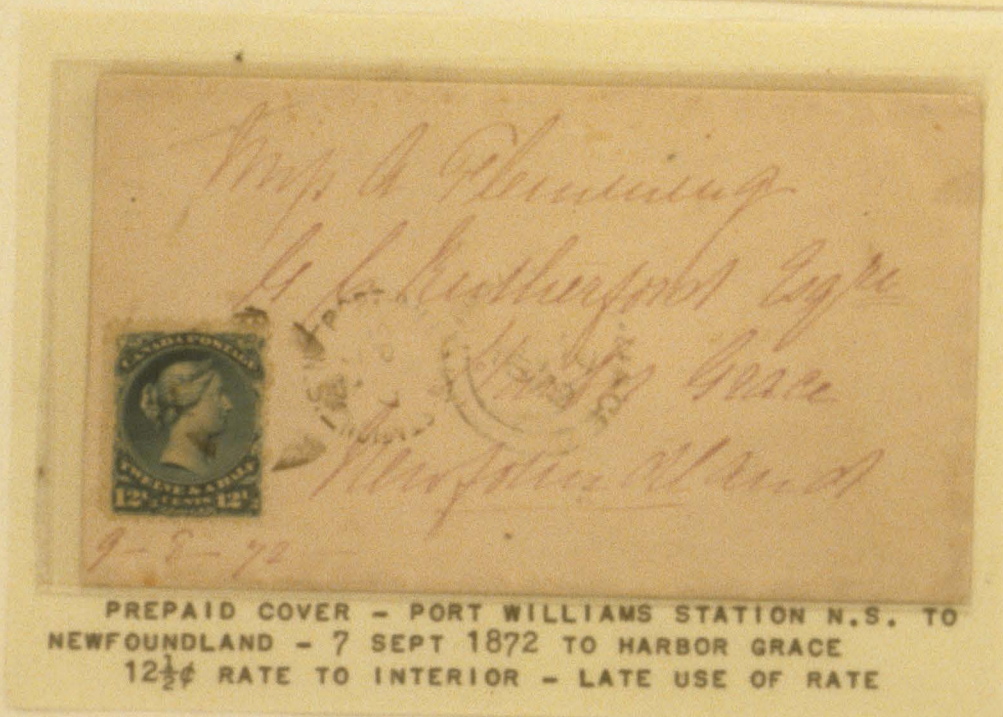 Miss A Flemming
G C Rutherford Esqre
Grace
Newfoundland
CANADA POSTAGE
TWELVE & A HALF
12½ CENTS 12½
PORT
N.S.
9 - 8 - 72 -
PREPAID COVER - PORT WILLIAMS STATION N.S. TO
NEWFOUNDLAND - 7 SEPT 1872 TO HARBOR GRACE
12½¢ RATE TO INTERIOR - LATE USE OF RATE